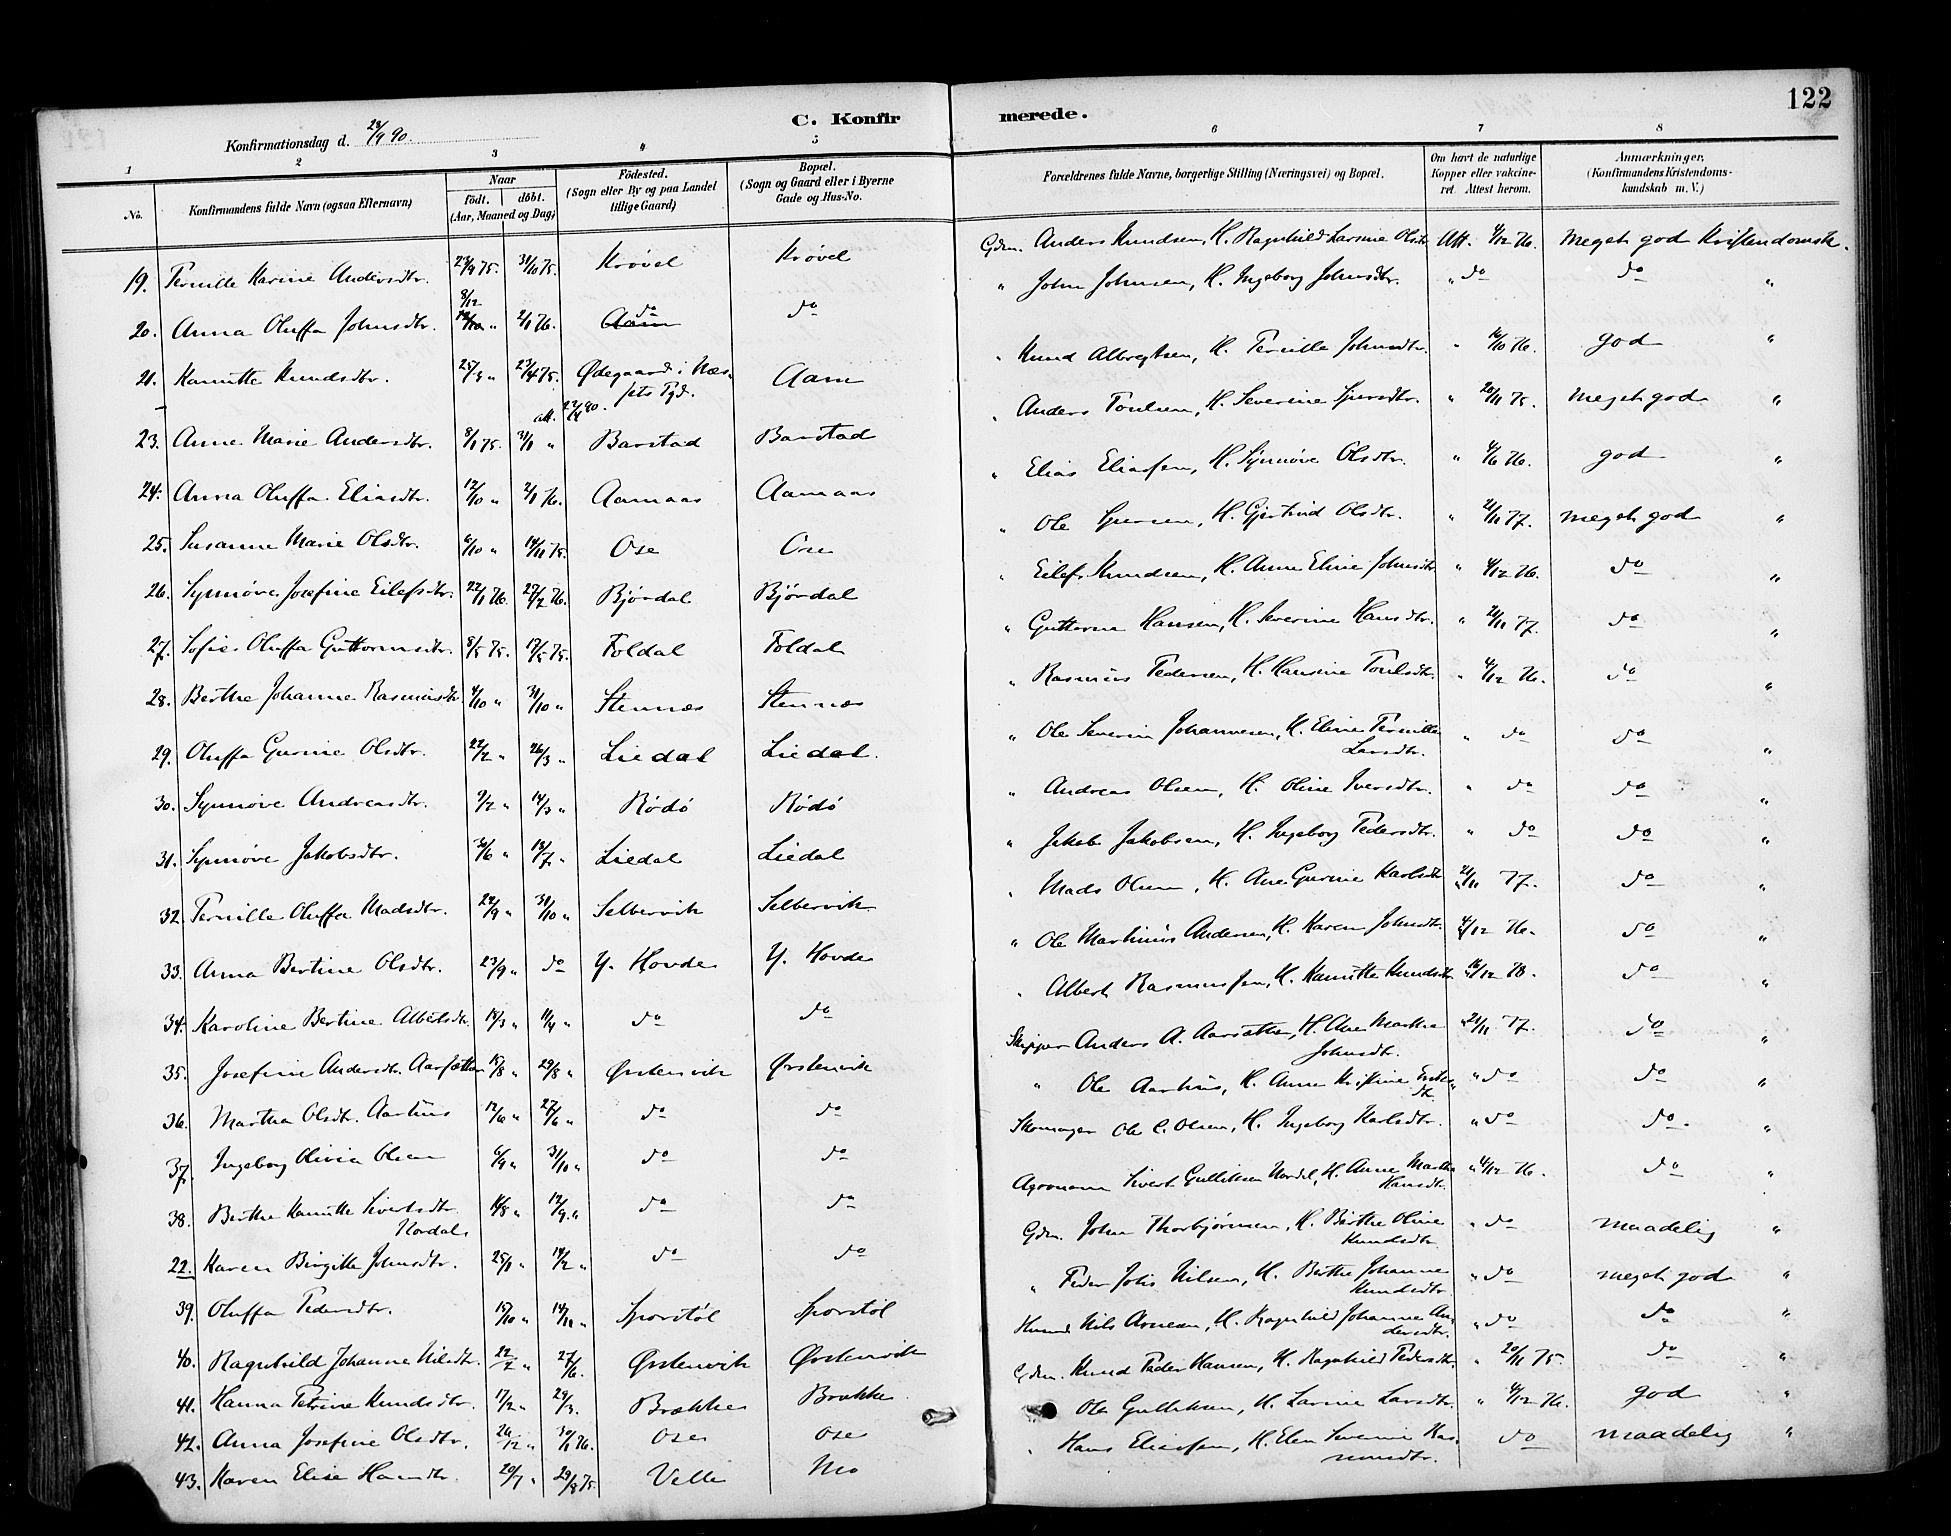 122
C. Konfirmerede.
Konfirmationsdag d. 28/9 90.
1 2 3 4 5 6 7 8
No. Konfirmandens fulde Navn (ogsaa Efternavn) Naar født. døbt. (Aar, Maaned og Dag) Fødested. (Sogn eller By og paa Landet tillige Gaard) Bopæl. (Sogn og Gaard eller i Byerne Gade og Hus-No. Forældrenes fulde Navne, borgerlige Stilling (Næringsvei) og Bopæl. Om havt de naturlige Kopper eller vaccineret. Attest herom. Anmærkninger, (Konfirmandens Kristendomskundskab m. V.)
19. Pernille Karine Andersdtr. 31/10 75. Krøvel Krøvel Gdm. Anders Knudsen, H. Ragnhild Larsine Olsdtr. Att. 4/12 76. meget god Kristendomsk.
20. Anna Oluffa Johnsdtr. 8/12 " 2/1 76. do do " John Johnsen, H. Ingeborg Johnsdtr. " do do "
21. Kanutte Knudsdtr. 25/3 " 23/4 75. Ødegaard i Næssets Pgd. Aam " Knud Albregtsen, H. Pernille Johnsdtr. " god "
att.
23. Anne Marie Andersdtr. 8/1 75. 31/1 " Barstad Barstad " Anders Poulsen, H. Severine Iversdtr. " 20/11 75. meget god "
24. Anna Oluffa Eliasdtr. 12/10 " 2/1 76. Aamaas Aamaas " Elias Eliassen, H. Synnøve Olsdtr. " god "
25. Susanne Marie Olsdtr. 6/10 " 14/11 75. Ose Ose " Ole Iversen, H. Gjertrud Olsdtr. " 21/11 77. meget god "
26. Synnøve Josefine Eilefsdtr. 22/1 76. 27/2 76. Bjørdal Bjørdal " Eilef Knudsen, H. Anne Eline Johnsdtr. " 4/12 76. do "
27. Sofie Oluffa Guttormsdtr. 8/5 75. 17/5 75. Foldal Foldal " Guttorm Hansen, H. Severine Hansdtr. " 21/11 77. do "
28. Berthe Johanne Rasmusdtr. 4/10 " 31/10 " Stennæs Stennæs " Rasmus Pedersen, H. Hansine Poulsdtr. " 4/12 76. do "
29. Oluffa Gurine Olsdtr. 22/2 " 26/3 " Liedal Liedal. " Ole Severin Johannesen, H. Eline Pernille Larsdtr. " do do "
30. Synnøve Andreasdtr. 9/2 " 14/3 " Rødø Rødø " Andreas Olsen, H. Oline Iversdtr. " do do "
31. Synnøve Jakobsdtr. 30/6 " 18/7 " Liedal Liedal " Jakob Jakobsen, H. Ingeborg Pedersdtr. " do do "
32. Pernille Oluffa Madsdtr. 22/9 " 31/10 " Selbervik Selbervik " Mads Olsen, H. Ane Gurine Karlsdtr. 21/11 77. do "
33. Anna Bertine Olsdtr. 23/9 " do Y. Hovde Y. Hovde " Ole Martinus Andersen, H. Karen Johnsdtr. 4/12 76. do "
34. Karoline Bertine Albertsdtr. 18/3 " 11/4 " do do " Albert Rasmussen, H. Kanutte Knudsdtr. 16/12 78. do "
35. Josefine Andersdtr. Aarsætter 15/8 " 29/8 " Ørstenvik Ørstenvik Skipper Anders A. Aarsæther, H. Ane Marthe Johnsdtr. " 21/11 77. do "
36. Martha Olsdtr. Aarhus 12/6 " 27/6 " do do " Ole Aarhus, H. Anne Kristine " do do "
37. Ingeborg Olivia Olsen 6/9 " 31/10 " do do Skomager Ole C. Olsen, H. Ingeborg Karlsdtr. " do do "
38. Berthe Kanutte Sivertsdtr. Nordal 14/8 " 12/9 " do do Agronom Sivert Gulliksen Nordal, H. Anne Marthe Hansdtr. " 4/12 76. do "
22. Karen Birgitte Johnsdtr. 25/1 " 14/2 " do do Gdm. John Thorbjørnsen, H. Birthe Oline Knudsdtr. " do maadelig "
39. Oluffa Pedersdtr. 15/10 " 14/11 " Sporstøl Sporstøl " Peder Johs Nilsen, H. Berthe Johanne Knudsdtr. " do meget god "
40. Ragnhild Johanne Nilsdtr. 22/2 " 27/6. Ørstenvik Ørstenvik Husmd. Nils Arnesen, H. Ragnhild Johanne Andersdtr. " do do "
41. Hanna Petrine Knudsdtr. 17/2 " 29/3. Brække Brække Gdm. Knud Peder Hansen, H. Ragnhild Pedersdtr. " 20/11 75. do "
42. Anna Josefine Olsdtr. 26/12 " 30/1 76. Ose Ose " Ole Gulliksen, H. Larine Larsdtr. " 4/12 76. god "
43. Karen Elise Hansdtr. 20/7 " 29/8 75. Velle Mo " Hans Eliassen, H. Elen Severine Rasmusdtr. do maadelig "